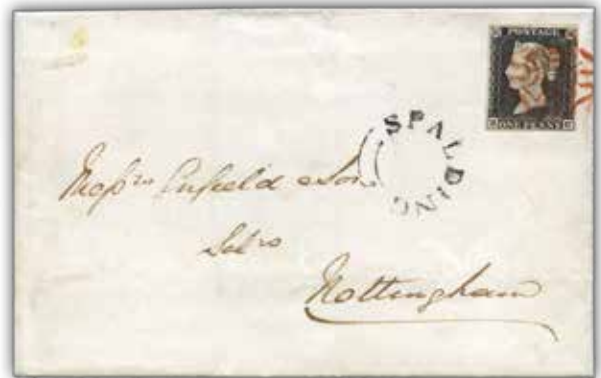 POSTAGE
ONE PENNY
SPALDING
Messrs Enfield & Son
Solrs
Nottingham